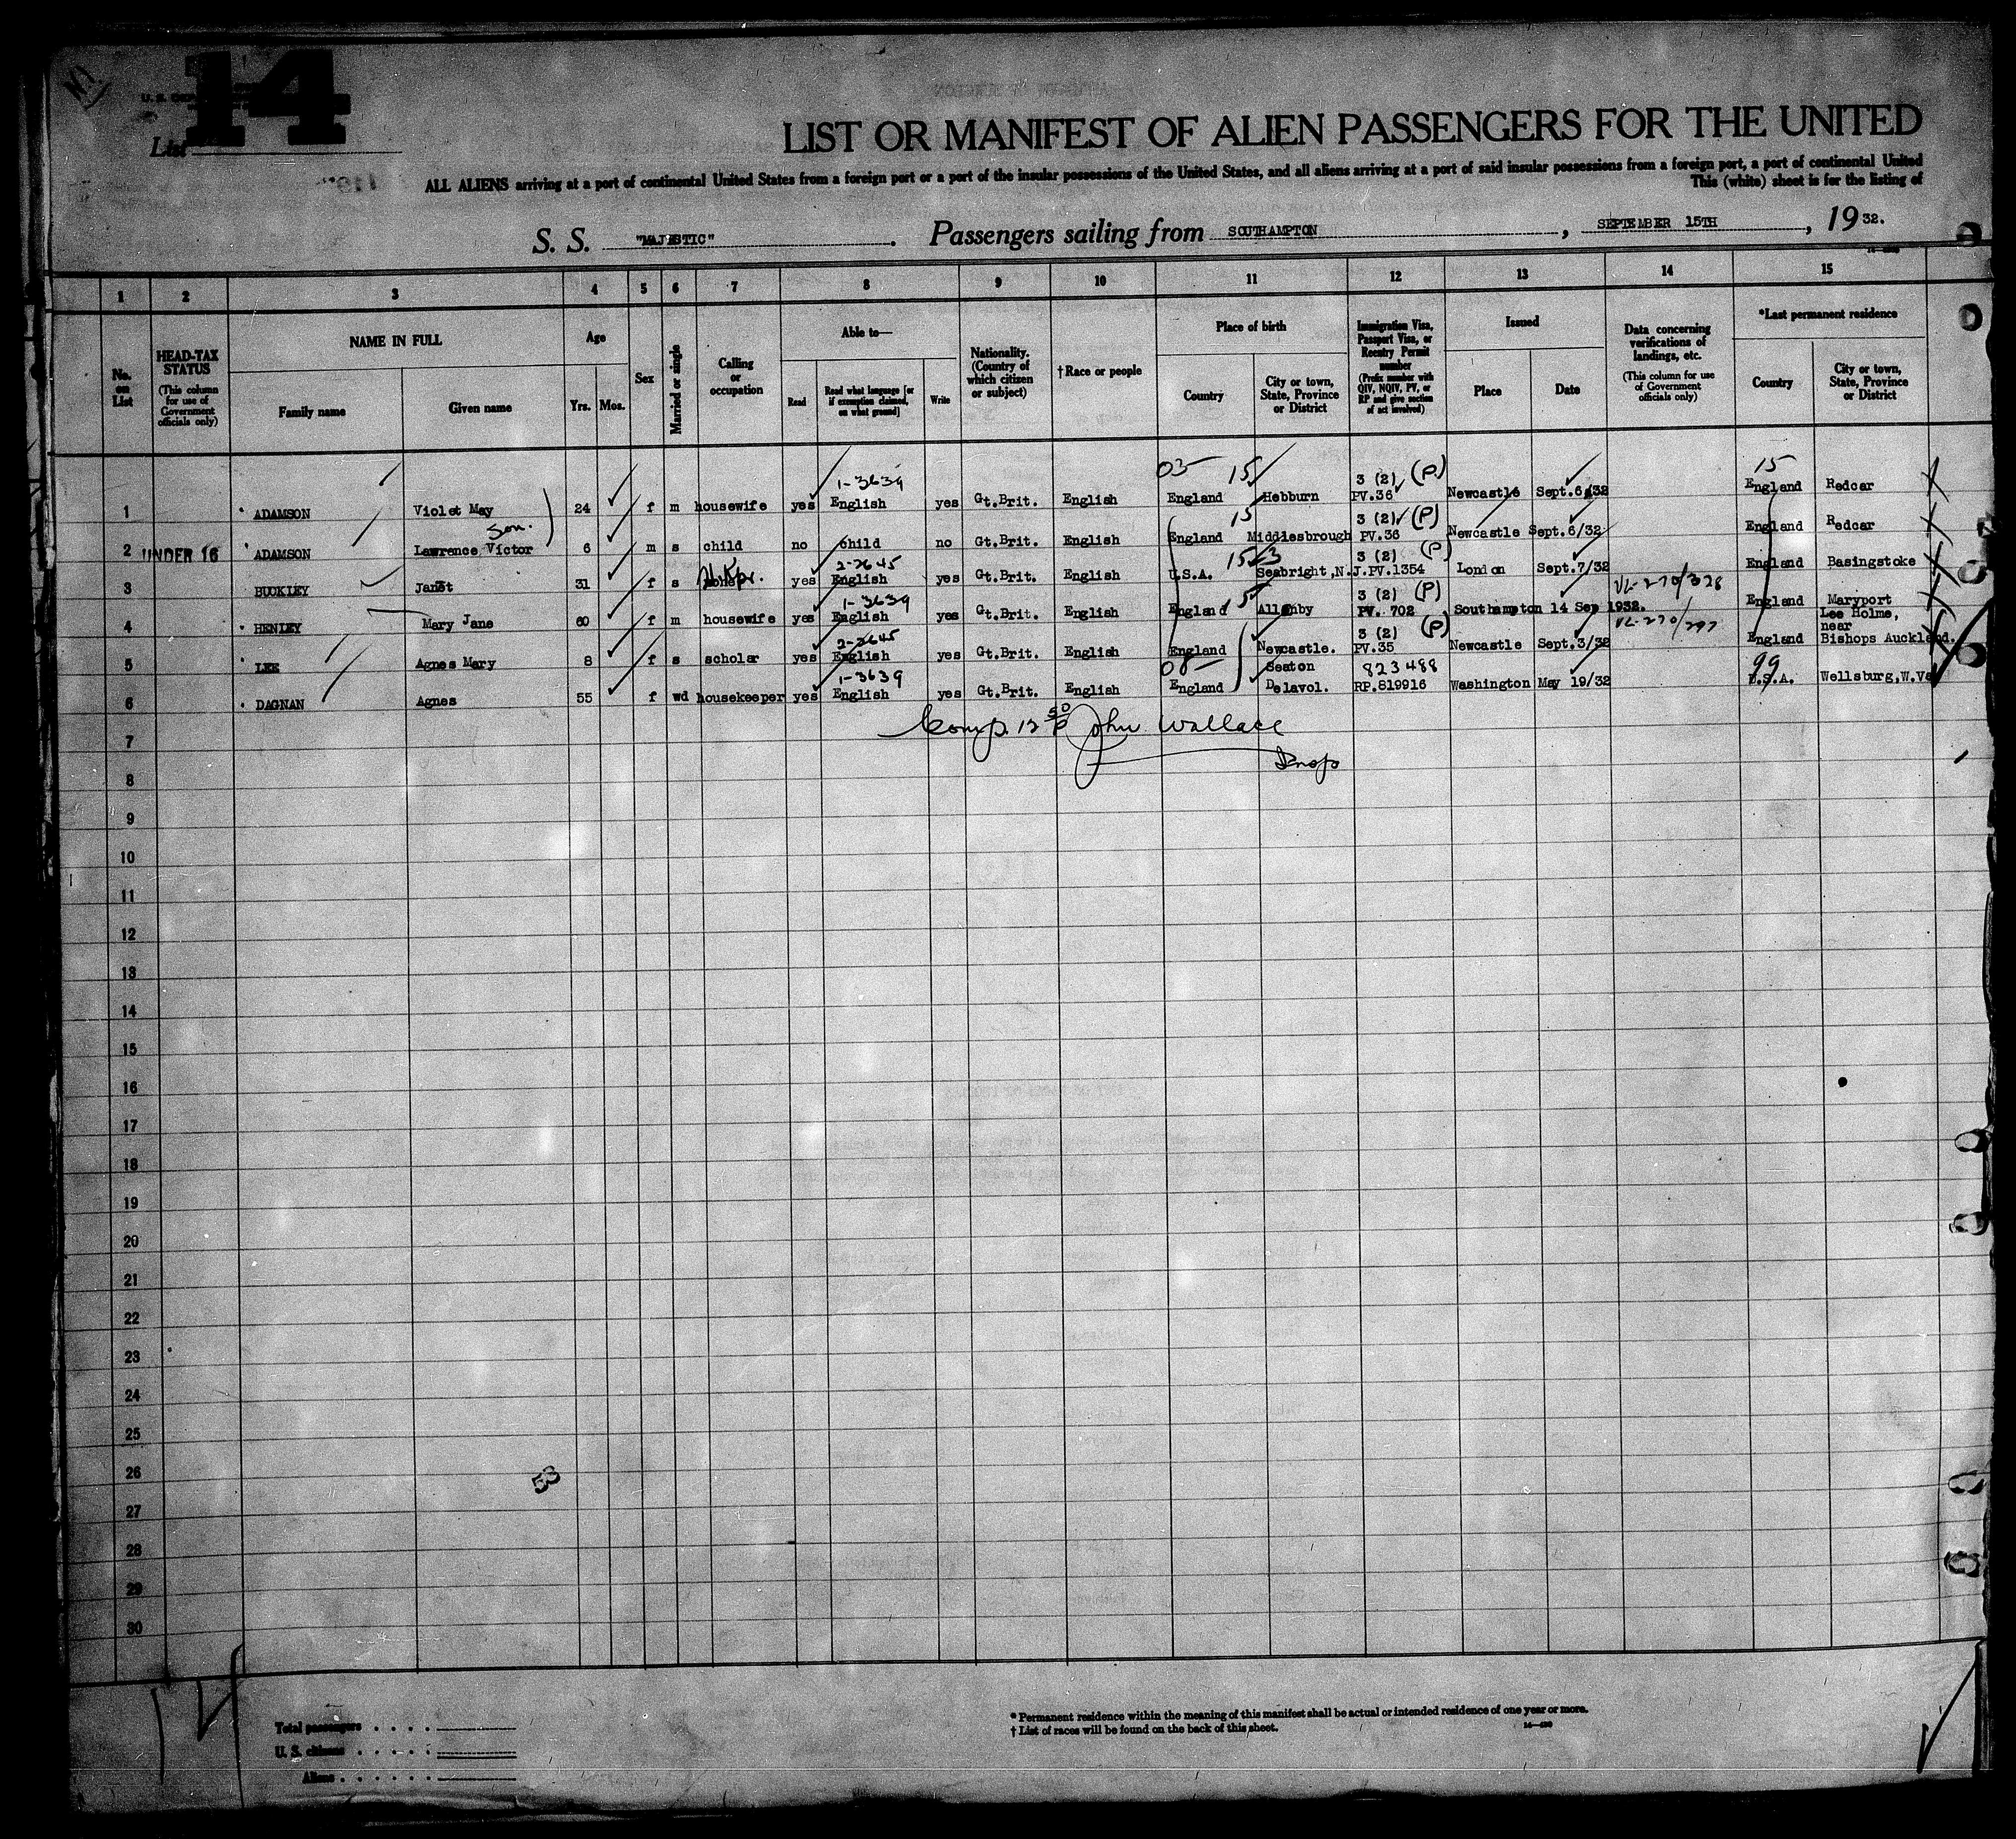 14
List
LIST OR MANIFEST OF ALIEN PASSENGERS FOR THE UNITED
ALL ALIENS arriving at a port of continental United States from a foreign port or a port of the insular possessions of the United States, and all aliens arriving at a port of said insular possessions from a foreign port, a port of continental United
This (white) sheet is for the listing of
S. S. "MAJESTIC" . Passengers sailing from SOUTHAMPTON , SEPTEMBER 15TH , 19 32.
1 2 3 4 5 6 7 8 9 10 11 12 13 14 15
No. on List
HEAD-TAX STATUS (This column for use of Government officials only)
NAME IN FULL
Family name Given name
Age
Yrs. Mos.
Sex
Married or single
Calling or occupation
Able to—
Read Read what language [or if exemption claimed, on what ground] Write
Nationality. (Country of which citizen or subject)
† Race or people
Place of birth
Country City or town, State, Province or District
Immigration Visa, Passport Visa, or Reentry Permit number (Prefix number with QIV, NQIV, PV, or RP and give section of act involved)
Issued
Place Date
Data concerning verifications of landings, etc. (This column for use of Government officials only)
*Last permanent residence
Country City or town, State, Province or District
1-3639 03 15 3 (2) (P) 15
1 ADAMSON Violet May 24 f m housewife yes English yes Gt.Brit. English England Hebburn PV.36 Newcastle Sept.6/32 England Redcar
Son. 15 3 (2) (P)
2 UNDER 16 ADAMSON Lawrence Victor 6 m s child no child no Gt.Brit. English England Middlesbrough PV.36 Newcastle Sept.6/32 England Redcar
2-2645 15 3 (2) (P)
3 BUCKLEY Janet 31 f s yes English yes Gt.Brit. English U.S.A. Seabright,N.J. PV.1354 London Sept.7/32 England Basingstoke
1-3639 15 3 (2) (P) VL-270/328
4 HENLEY Mary Jane 60 f m housewife yes English yes Gt.Brit. English England Allenby PV. 702 Southampton 14 Sep 1932. England Maryport
2-2645 3 (2) (P) VL-270/297 Lee Holme, near
5 LEE Agnes Mary 8 f s scholar yes English yes Gt.Brit. English England Newcastle. PV.35 Newcastle Sept.3/32 England Bishops Auckland.
1-3639 08 Seaton 823488 99
6 DAGNAN Agnes 55 f wd housekeeper yes English yes Gt.Brit. English England Delavol. RP.819916 Washington May 19/32 U.S.A. Wellsburg,W.Va
Comp. 12 50 P John Wallace
7
Insp
8
9
10
11
12
13
14
15
16
17
18
19
20
21
22
23
24
25
26
53
27
28
29
30
14
Total passengers
U. S. citizens
Aliens
* Permanent residence within the meaning of this manifest shall be actual or intended residence of one year or more.
† List of races will be found on the back of this sheet.